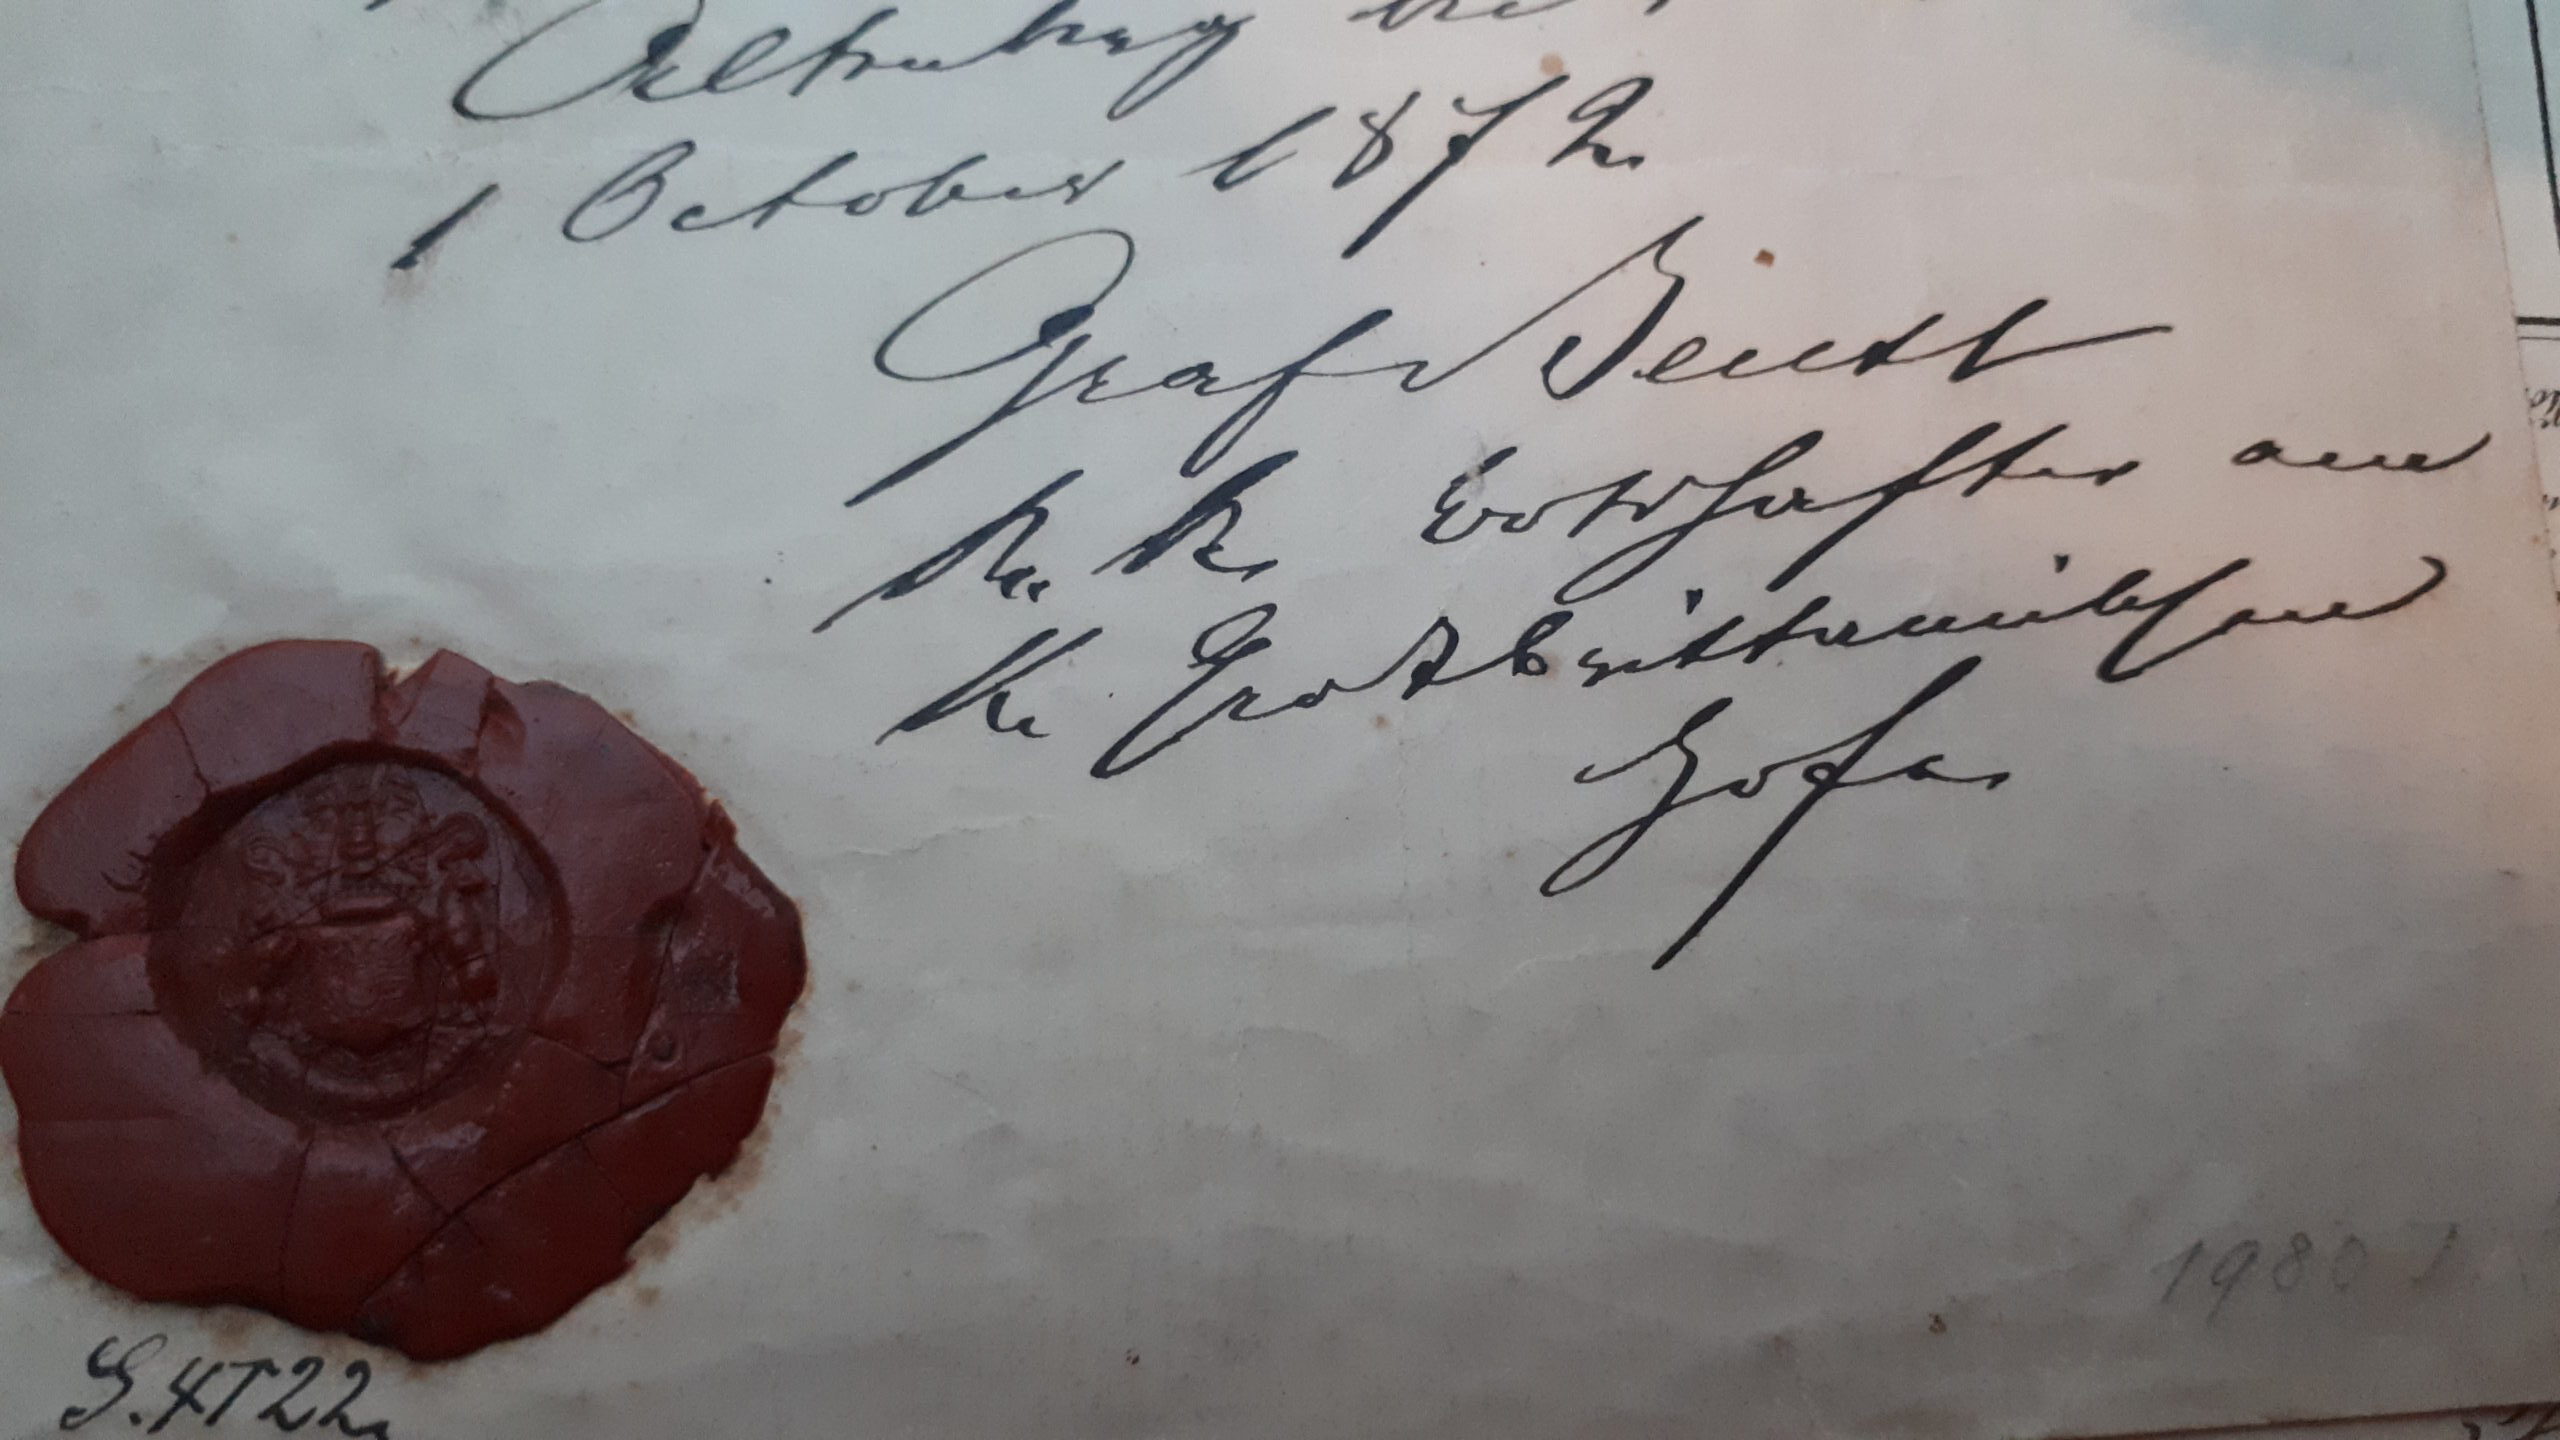 Altenberg den
1 October 1872
Graf Beust
K. K. Botschafter am
K. Großbrittannischen
Hofe.
G. 4T22.
1980